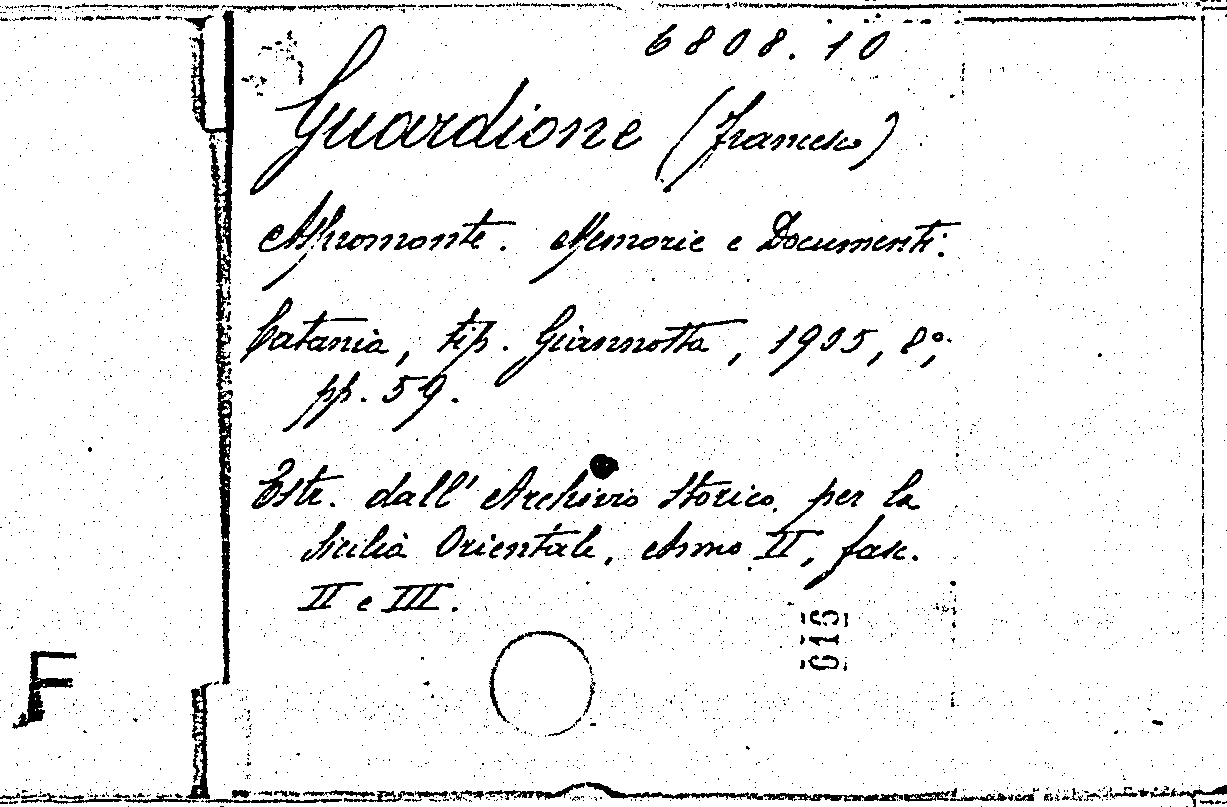 6808.10
Guardione (Francesco)
Aspromonte. Memorie e Documenti.
Catania, tip. Giannotta, 1905, 8°,
pp. 59.
Estr. dall' Archivio Storico per la
Sicilia Orientale, Anno II, fasc.
II e III.
615
F